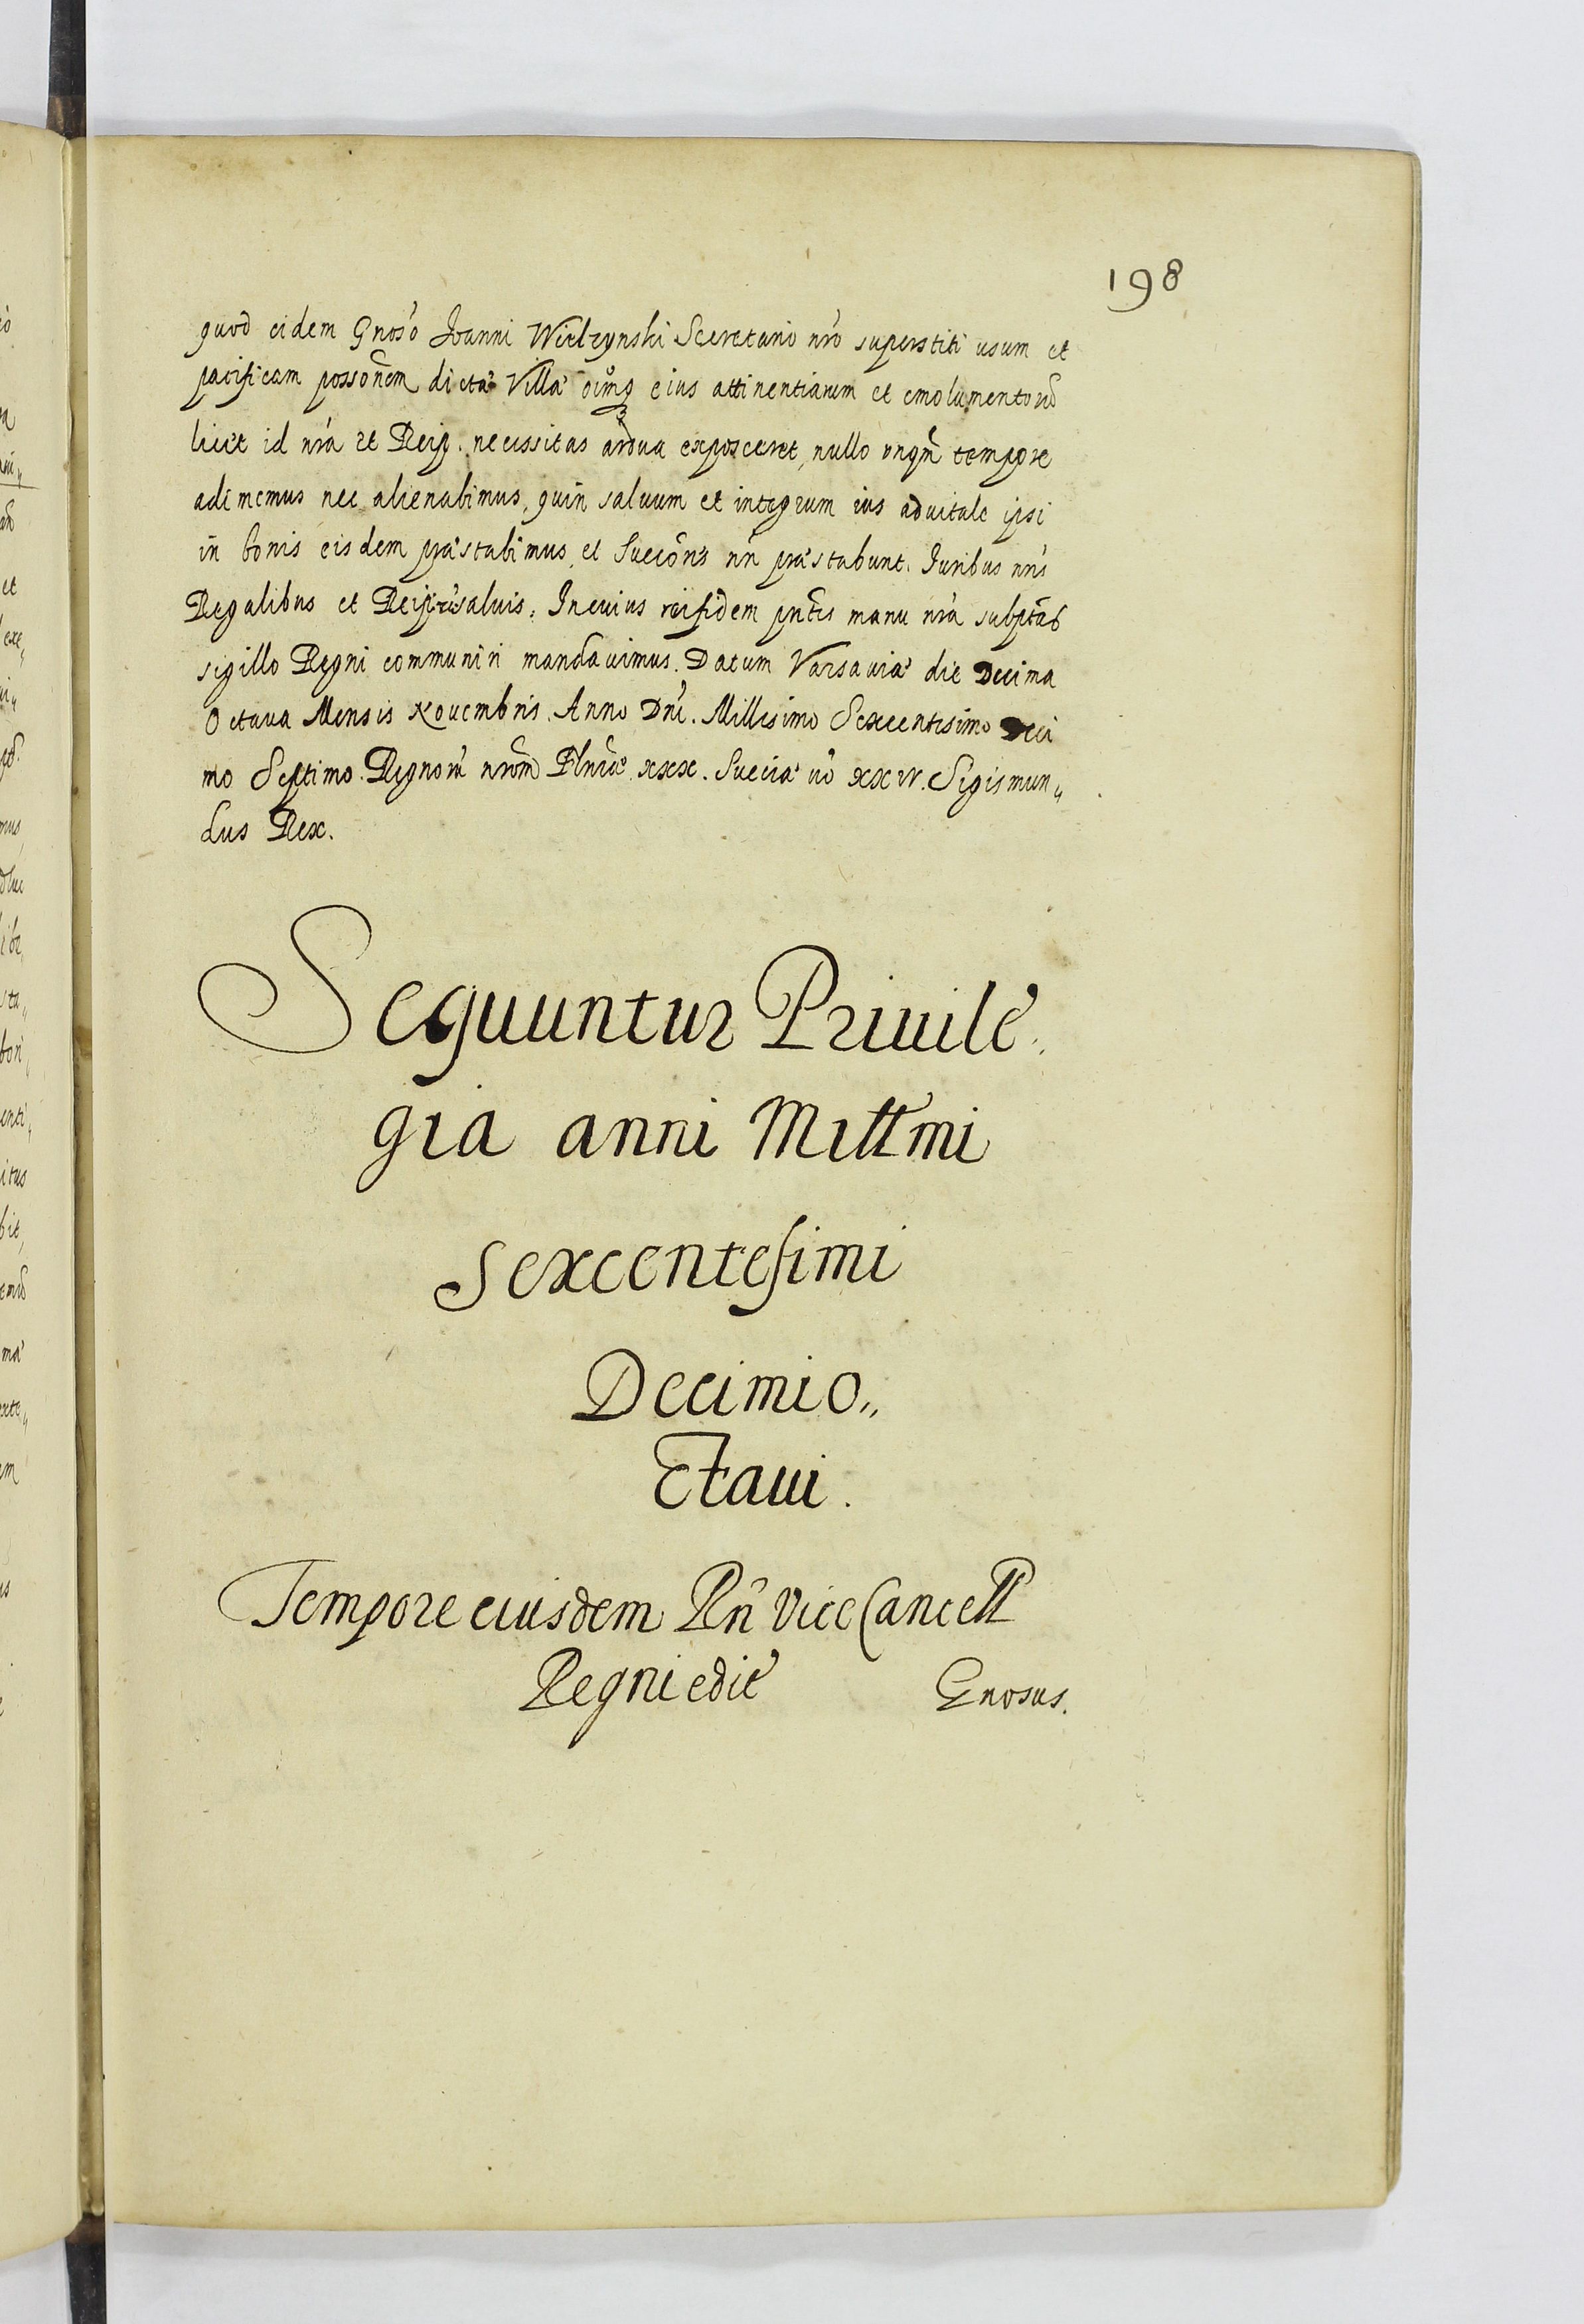 198
quod eidem Gnoso Joanni Wielzynski Secretario nro superstiti usum et
pacificam possonem dictæ Villæ oiumq eius attinentiarum et emolumentoru
licet id nra et Reip. necessitas ardua exposceret, nullo unqm tempore
adimemus nec alienabimus, quin saluum et integrum ius aduitale ipsi
in bonis eisdem præstabimus, et Succōrs nri præstabunt. Iuribus nris
Regalibus et Reip: saluis. In cuius rei fidem pntes manu nra subptas
sigillo Regni communiri mandauimus. Datum Varsauiæ die Decima
Octaua Mensis Nouembris. Anno Dni. Millesimo Sexcentesimo Deci
mo Septimo. Regnorū nrorm Plniæ xxx. Sueciæ uo xxiv. Sigismun„
dus Rex.
Sequuntur Priuile
gia anni Millmi
sexcentesimi
Decimi o„
Ctaui.
Tempore eiusdem Rñ ViceCancell
Regni edit
Gnosus.